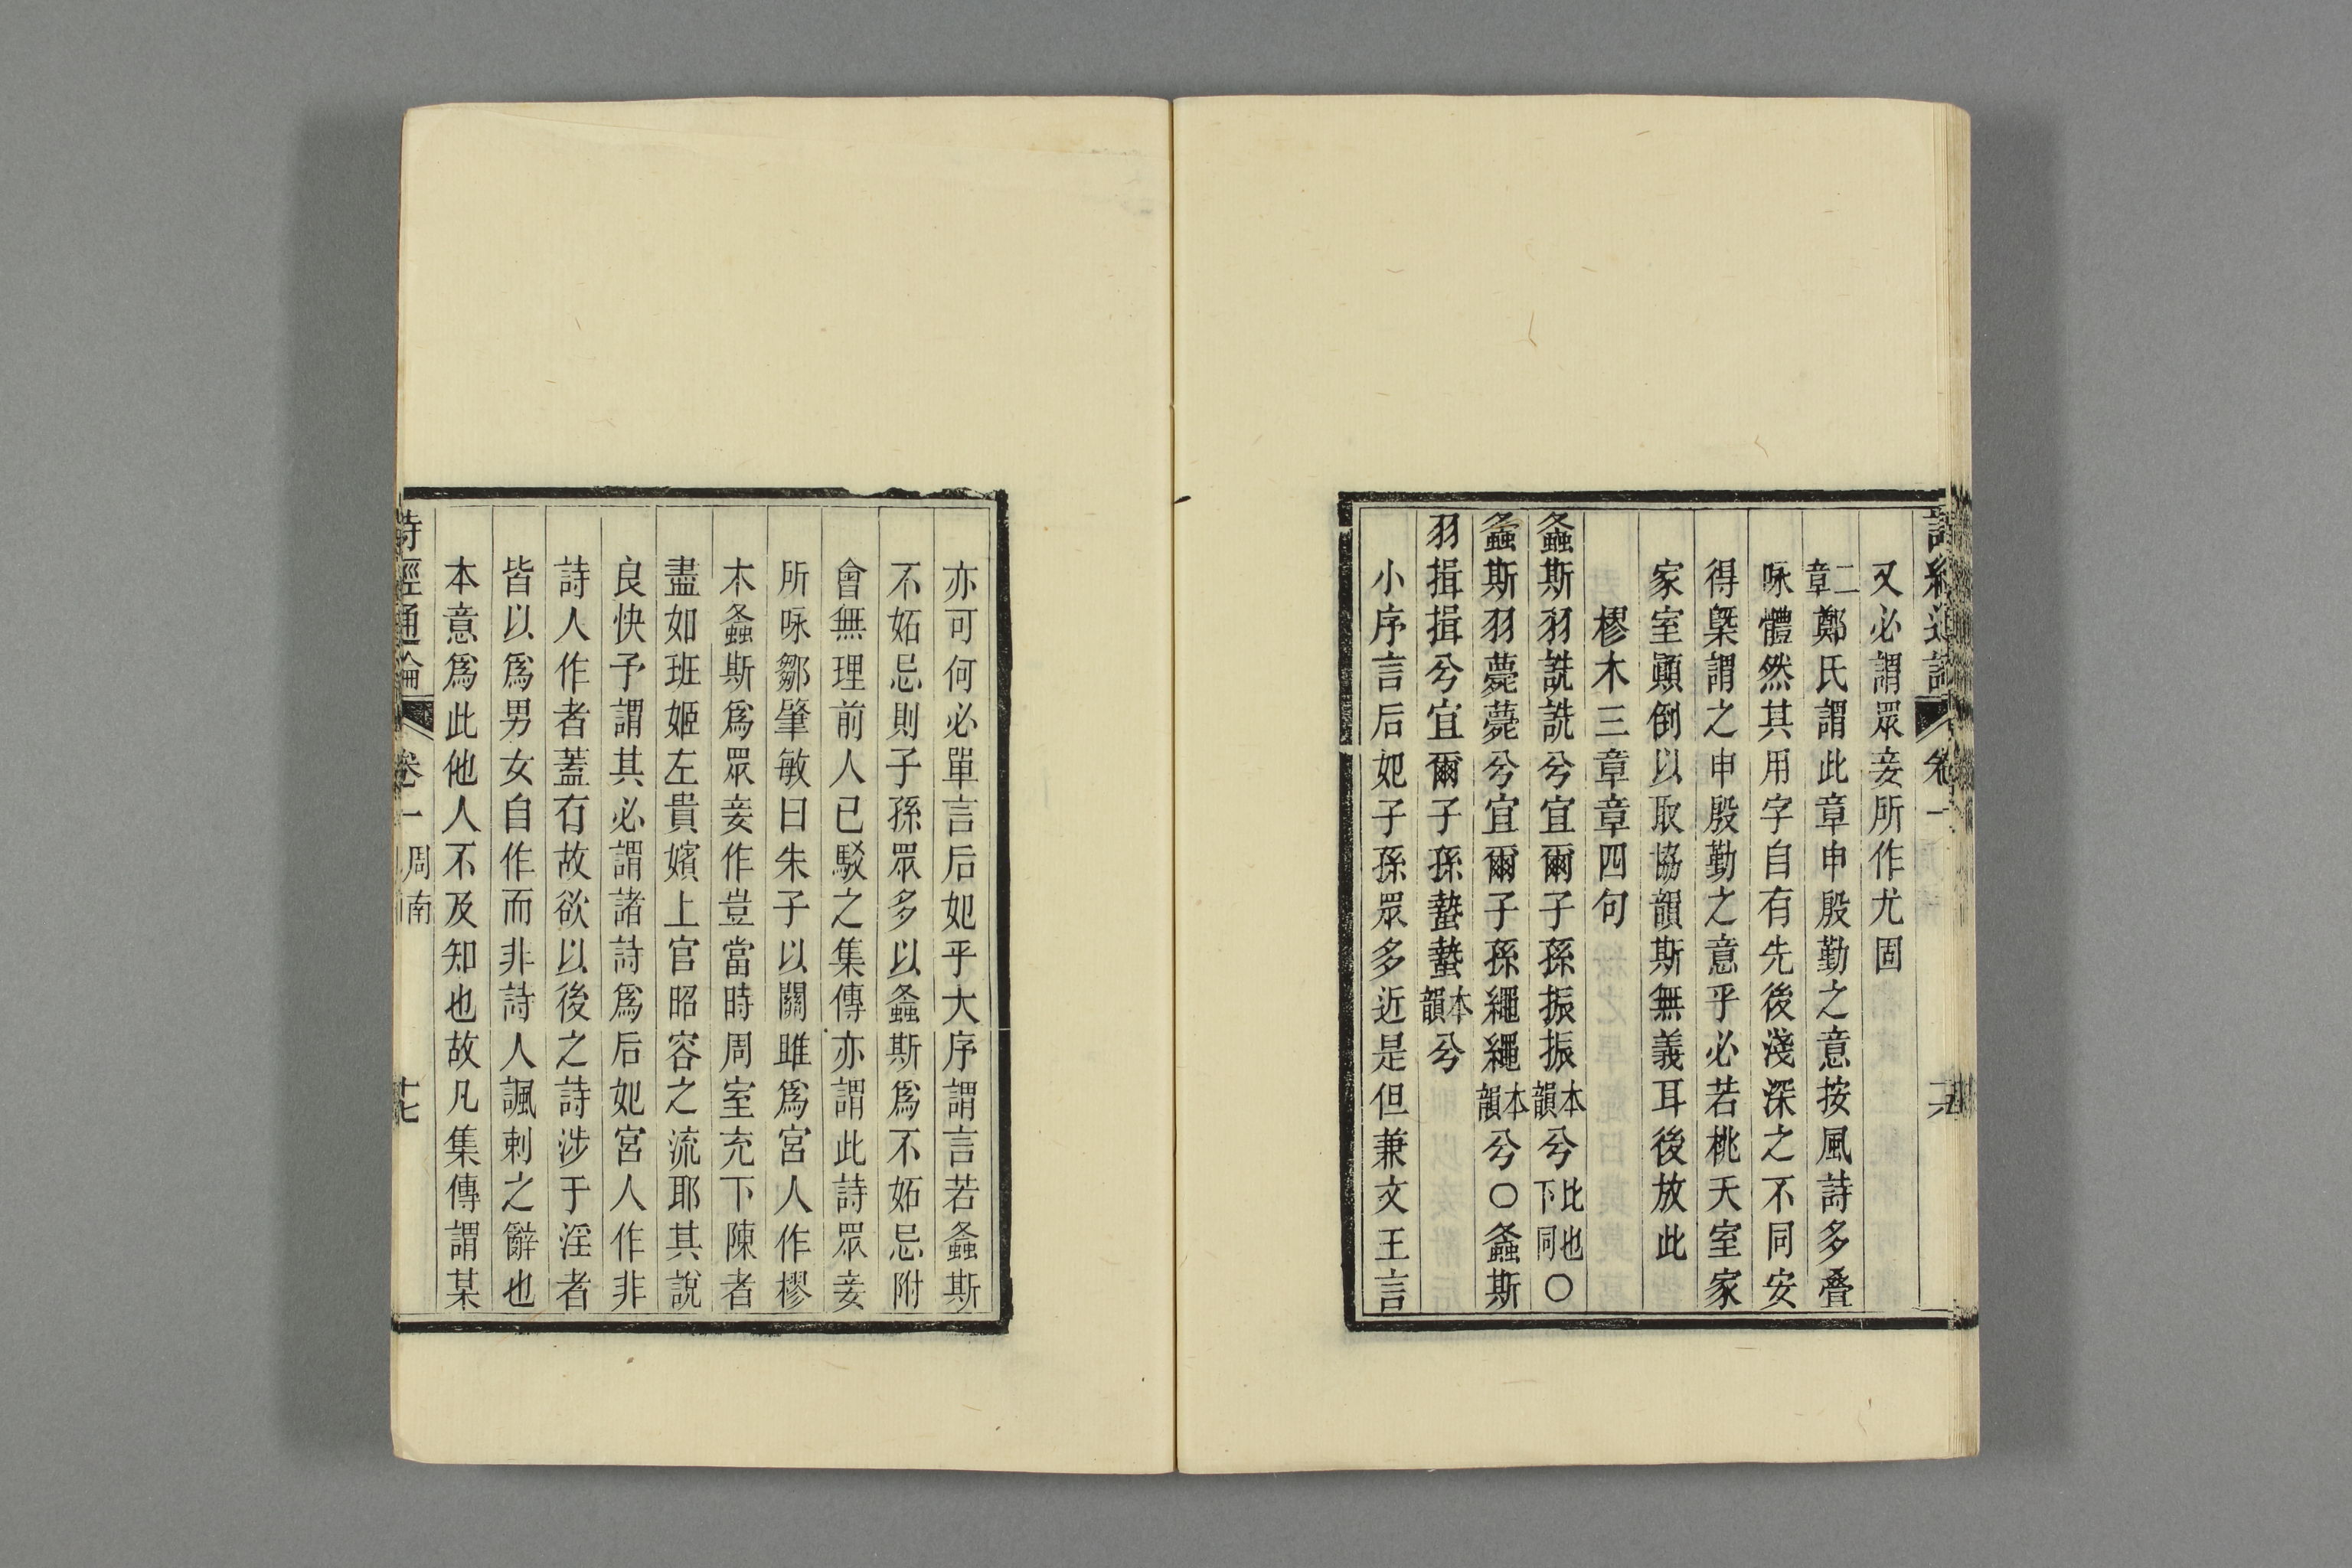 又必謂眾妾所作尤固
二章鄭氏謂此章申殷勤之意按風詩多疊
咏體然其用字自有先後淺深之不同安
得槩謂之申殷勤之意乎必若桃夭室家
家室顚倒以取協韻斯無義耳後放此
樛木三章章四句
螽斯羽詵詵兮宜爾子孫振振本韻兮比也下同○
螽斯羽薨薨兮宜爾子孫繩繩本韻兮○螽斯
羽揖揖兮宜爾子孫蟄蟄本韻兮
小序言后妃子孫眾多近是但兼文王言
亦可何必單言后妃乎大序謂言若螽斯
不妬忌則子孫眾多以螽斯爲不妬忌附
會無理前人已駁之集傳亦謂此詩眾妾
所咏鄒肇敏曰朱子以關雎爲宮人作樛
木螽斯爲眾妾作豈當時周室充下陳者
盡如班姬左貴嬪上官昭容之流耶其說
良快予謂其必謂諸詩爲后妃宮人作非
詩人作者蓋有故欲以後之詩涉于淫者
皆以爲男女自作而非詩人諷刺之辭也
本意爲此他人不及知也故凡集傳謂某
詩經通論 卷一 周南 十七